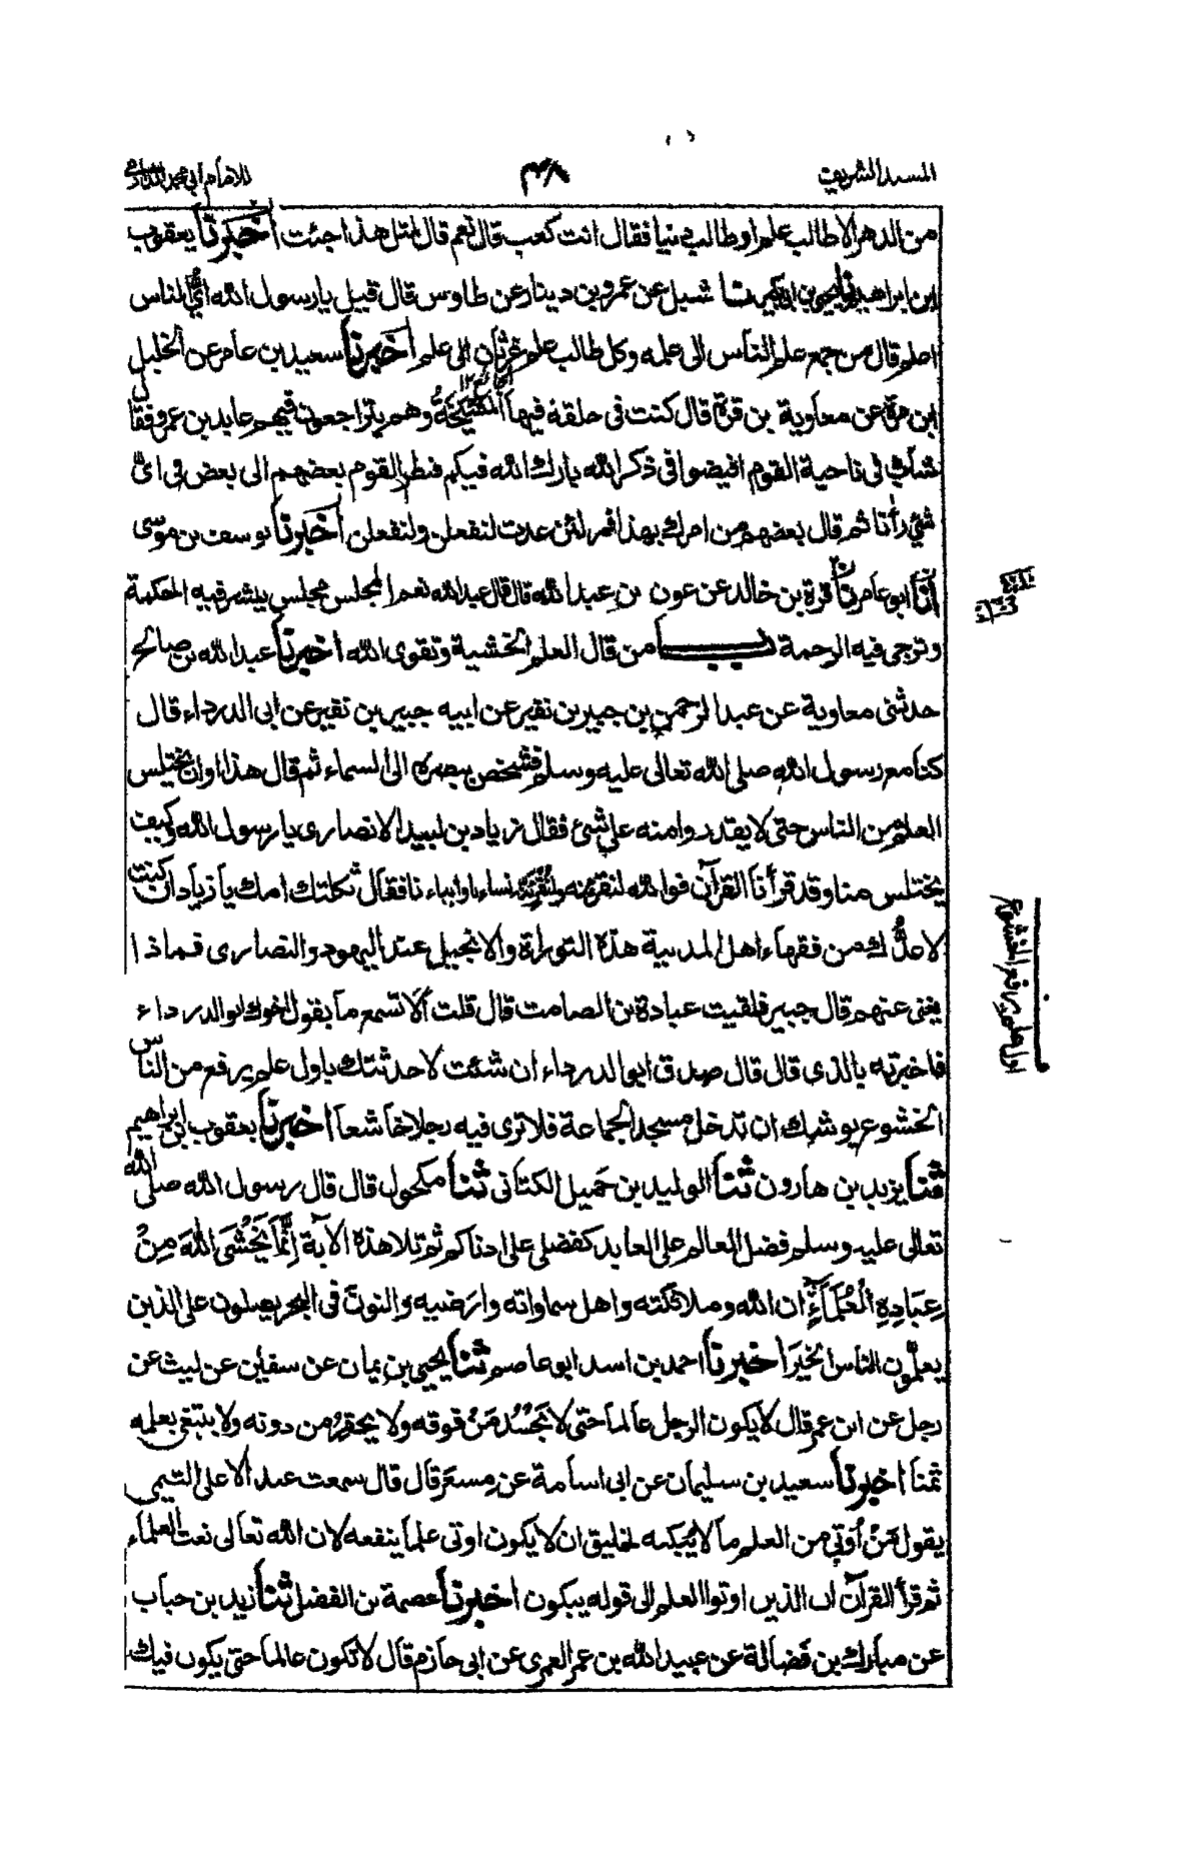 المسند الشريف ٤٨ للامام ابي محمد الدارمي
من الدهر الا طالب علم او طالب دنيا فقال انت كعب قال نعم قال لمثل هذا جئت اخبرنا يعقوب
ابن ابراهيم ثنا يحيى بن ابي بكير ثنا شبل عن عمرو بن دينار عن طاوس قال قيل يا رسول الله اي الناس
اعلم قال من جمع علم الناس الى علمه وكل طالب علم غرثان الى علم اخبرنا سعيد بن عامر عن الخليل
ابن مرة عن معاوية بن قرة قال كنت في حلقة فيها المشيخة وهم يتراجعون فيهم عايد بن عمرو فقال
شاب في ناحية القوم افيضوا في ذكر الله بارك الله فيكم فنظر القوم بعضهم الى بعض في اي
شيء رأنا ثم قال بعضهم من امرك بهذا فمر لئن عدت لنفعلن ولنفعلن اخبرنا يوسف بن موسى
انا ابو عامر نا قرة بن خالد عن عون بن عبد الله قال قال عبد الله نعم المجلس مجلس ينشر فيه الحكمة
وترجى فيه الرحمة باب من قال العلم الخشية وتقوى الله اخبرنا عبد الله بن صالح
حدثني معاوية عن عبد الرحمن بن جبير بن نفير عن ابيه جبير بن نفير عن ابي الدرداء قال
كنا مع رسول الله صلى الله تعالى عليه وسلم فشخص ببصره الى السماء ثم قال هذا اوان يختلس
العلم من الناس حتى لا يقدروا منه على شئ فقال زياد بن لبيد الانصاري يا رسول الله وكيف
يختلس منا وقد قرأنا القرآن فوالله لنقرئنه ولنقرئنه نساءنا وابناءنا فقال ثكلتك امك يا زياد ان كنت
لاعدك من فقهاء اهل المدينة هذه التوراة والانجيل عند اليهود والنصارى فماذا
يغني عنهم قال جبير فلقيت عبادة بن الصامت قال قلت ألا تسمع ما يقول اخوك ابو الدرداء
فاخبرته بالذي قال قال صدق ابو الدرداء ان شئت لاحدثتك باول علم يرفع من الناس
الخشوع يوشك ان تدخل مسجد الجماعة فلا ترى فيه رجلا خاشعا اخبرنا يعقوب بن ابراهيم
ثنا يزيد بن هارون ثنا الوليد بن جميل الكتاني ثنا مكحول قال قال رسول الله صلى الله
تعالى عليه وسلم فضل العالم على العابد كفضلي على ادناكم ثم تلا هذه الآية إِنَّمَا يَخْشَى اللهَ مِنْ
عِبَادِهِ الْعُلَمَاءُ ان الله وملائكته واهل سماواته وارضيه والنون في البحر يصلون على الذين
يعلمون الناس الخير اخبرنا احمد بن اسد ابو عاصم ثنا يحيى بن يمان عن سفين عن ليث عن
رجل عن ابن عمر قال لا يكون الرجل عالما حتى لا يَحْسُد مَنْ فوقه ولا يحقر من دونه ولا يبتغي بعلمه
ثمنا اخبرنا سعيد بن سليمان عن ابي اسامة عن مِسعَر قال قال سمعت عبد الاعلى التيمي
يقول مَنْ أُوتِيَ من العلم ما لا يُبكيه لخليق ان لا يكون اوتي علما ينفعه لان الله تعالى نعت العلماء
ثم قرأ القرآن ان الذين اوتوا العلم الى قوله يبكون اخبرنا عصمة بن الفضل ثنا زيد بن حباب
عن مبارك بن فضالة عن عبيد الله بن عمر العمري عن ابي حازم قال لا تكون عالما حتى يكون فيك
اول علم يرفع الخشوع